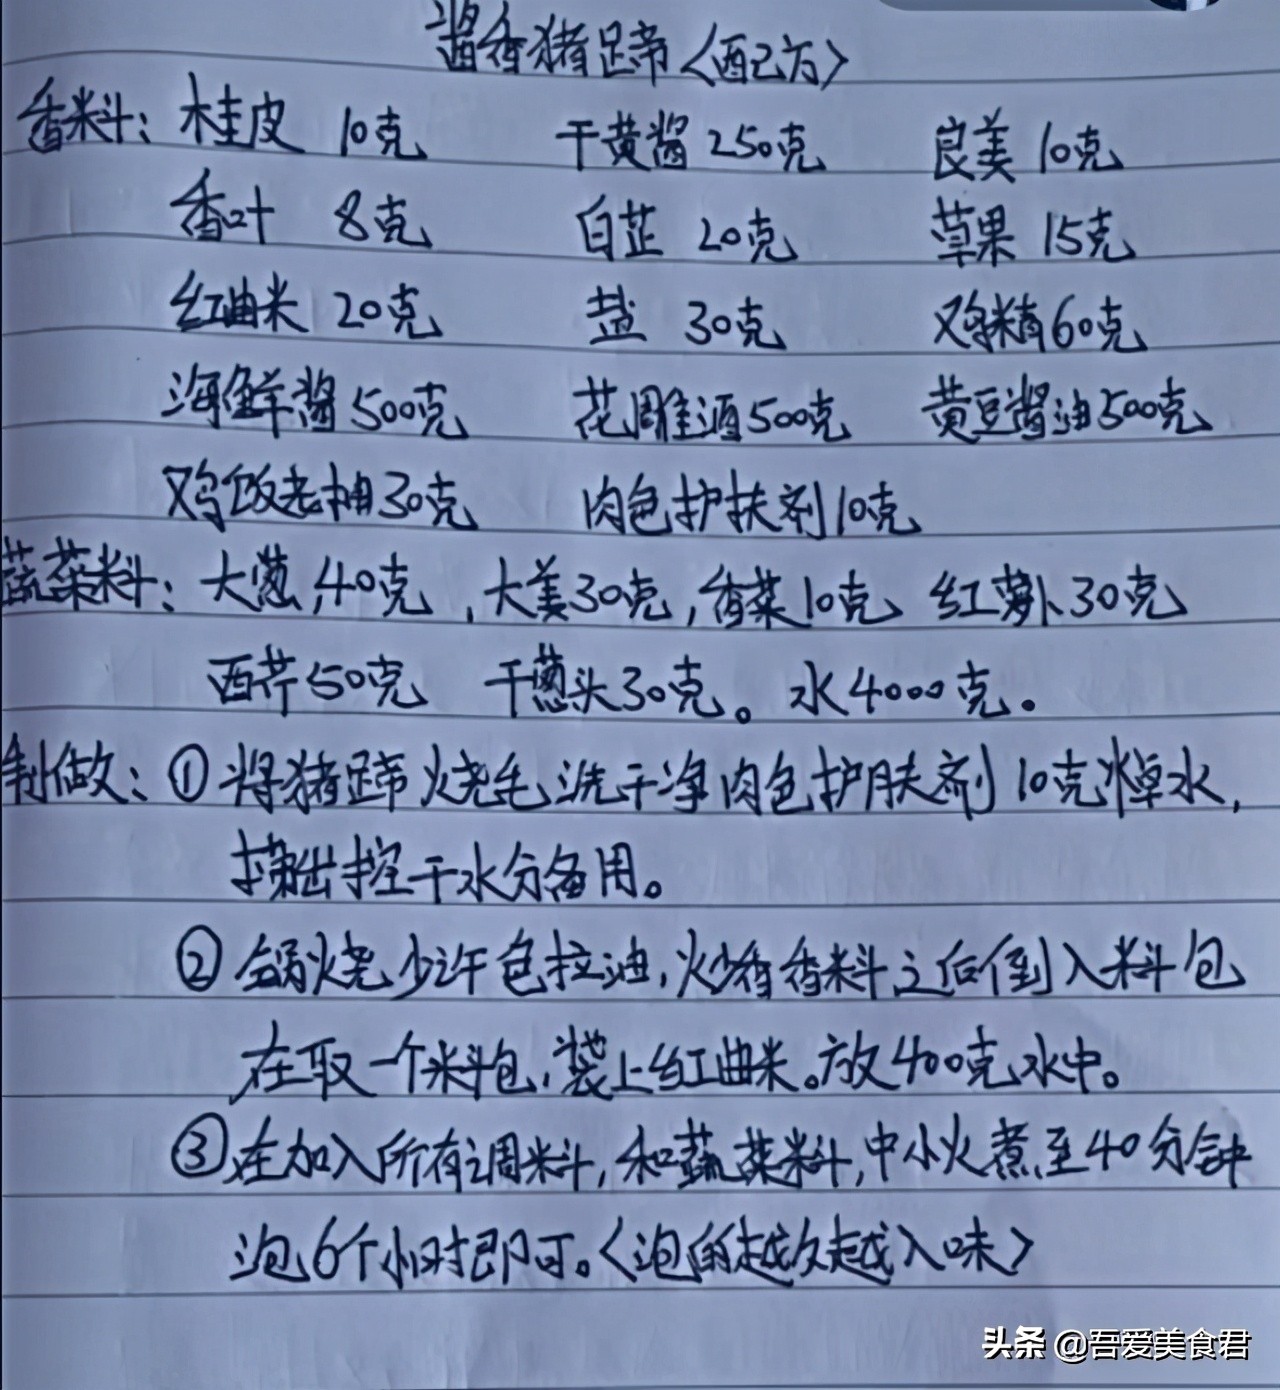 酱香猪蹄〈配方〉
香料：桂皮 10克 干黄酱250克 良姜10克
香叶 8克 白芷 20克 草果 15克
红曲米 20克 盐 30克 鸡精60克
海鲜酱500克 花雕酒500克 黄豆酱油500克
鸡饭老抽30克 肉色护扶剂10克
蔬菜料：大葱,40克,大姜30克,香菜10克 红萝卜30克
西芹50克 干葱头30克。水4000克.
制做：①将猪蹄火烧毛洗干净肉色护肤剂10克焯水,
捞出控干水分备用。
②锅烧少许色拉油,炒香香料之后倒入料包
在取一个料包,装上红曲米。放400克水中。
③在加入所有调料,和蔬菜料,中小火煮至40分钟
泡6个小时即可。〈泡的越久越入味〉
头条 @吾爱美食君